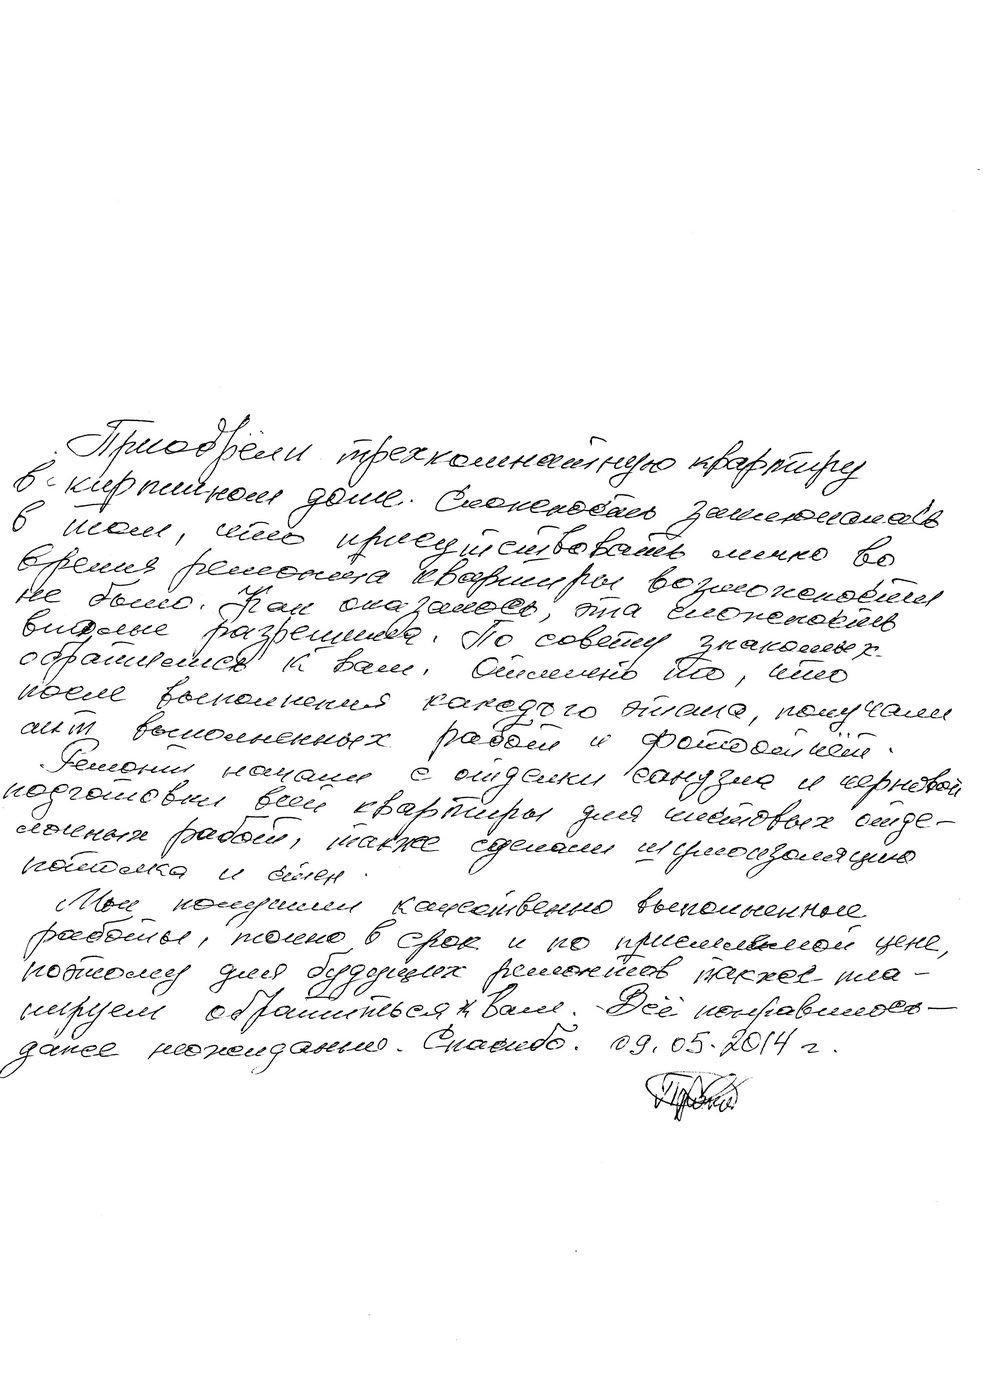 Приобрели трехкомнатную квартиру
в кирпичном доме. Сложность заключалась
в том, что присутствовать лично во
время ремонта квартиры возможности
не было. Как оказалось, эта сложность
вполне разрешима. По совету знакомых
обратились к вам. Отлично то, что
после выполнения каждого этапа, получали
акт выполненных работ и фотоотчёт.
Ремонт начали с отделки санузла и черновой
подготовки всей квартиры для чистовых отде-
лочных работ, также сделали шумоизоляцию
потолка и стен.
Мы получили качественно выполненные
работы, точно в срок и по приемлемой цене,
поэтому для будущих ремонтов также пла-
нируем обратиться к вам. Всё понравилось -
даже неожиданно. Спасибо. 09.05.2014 г.